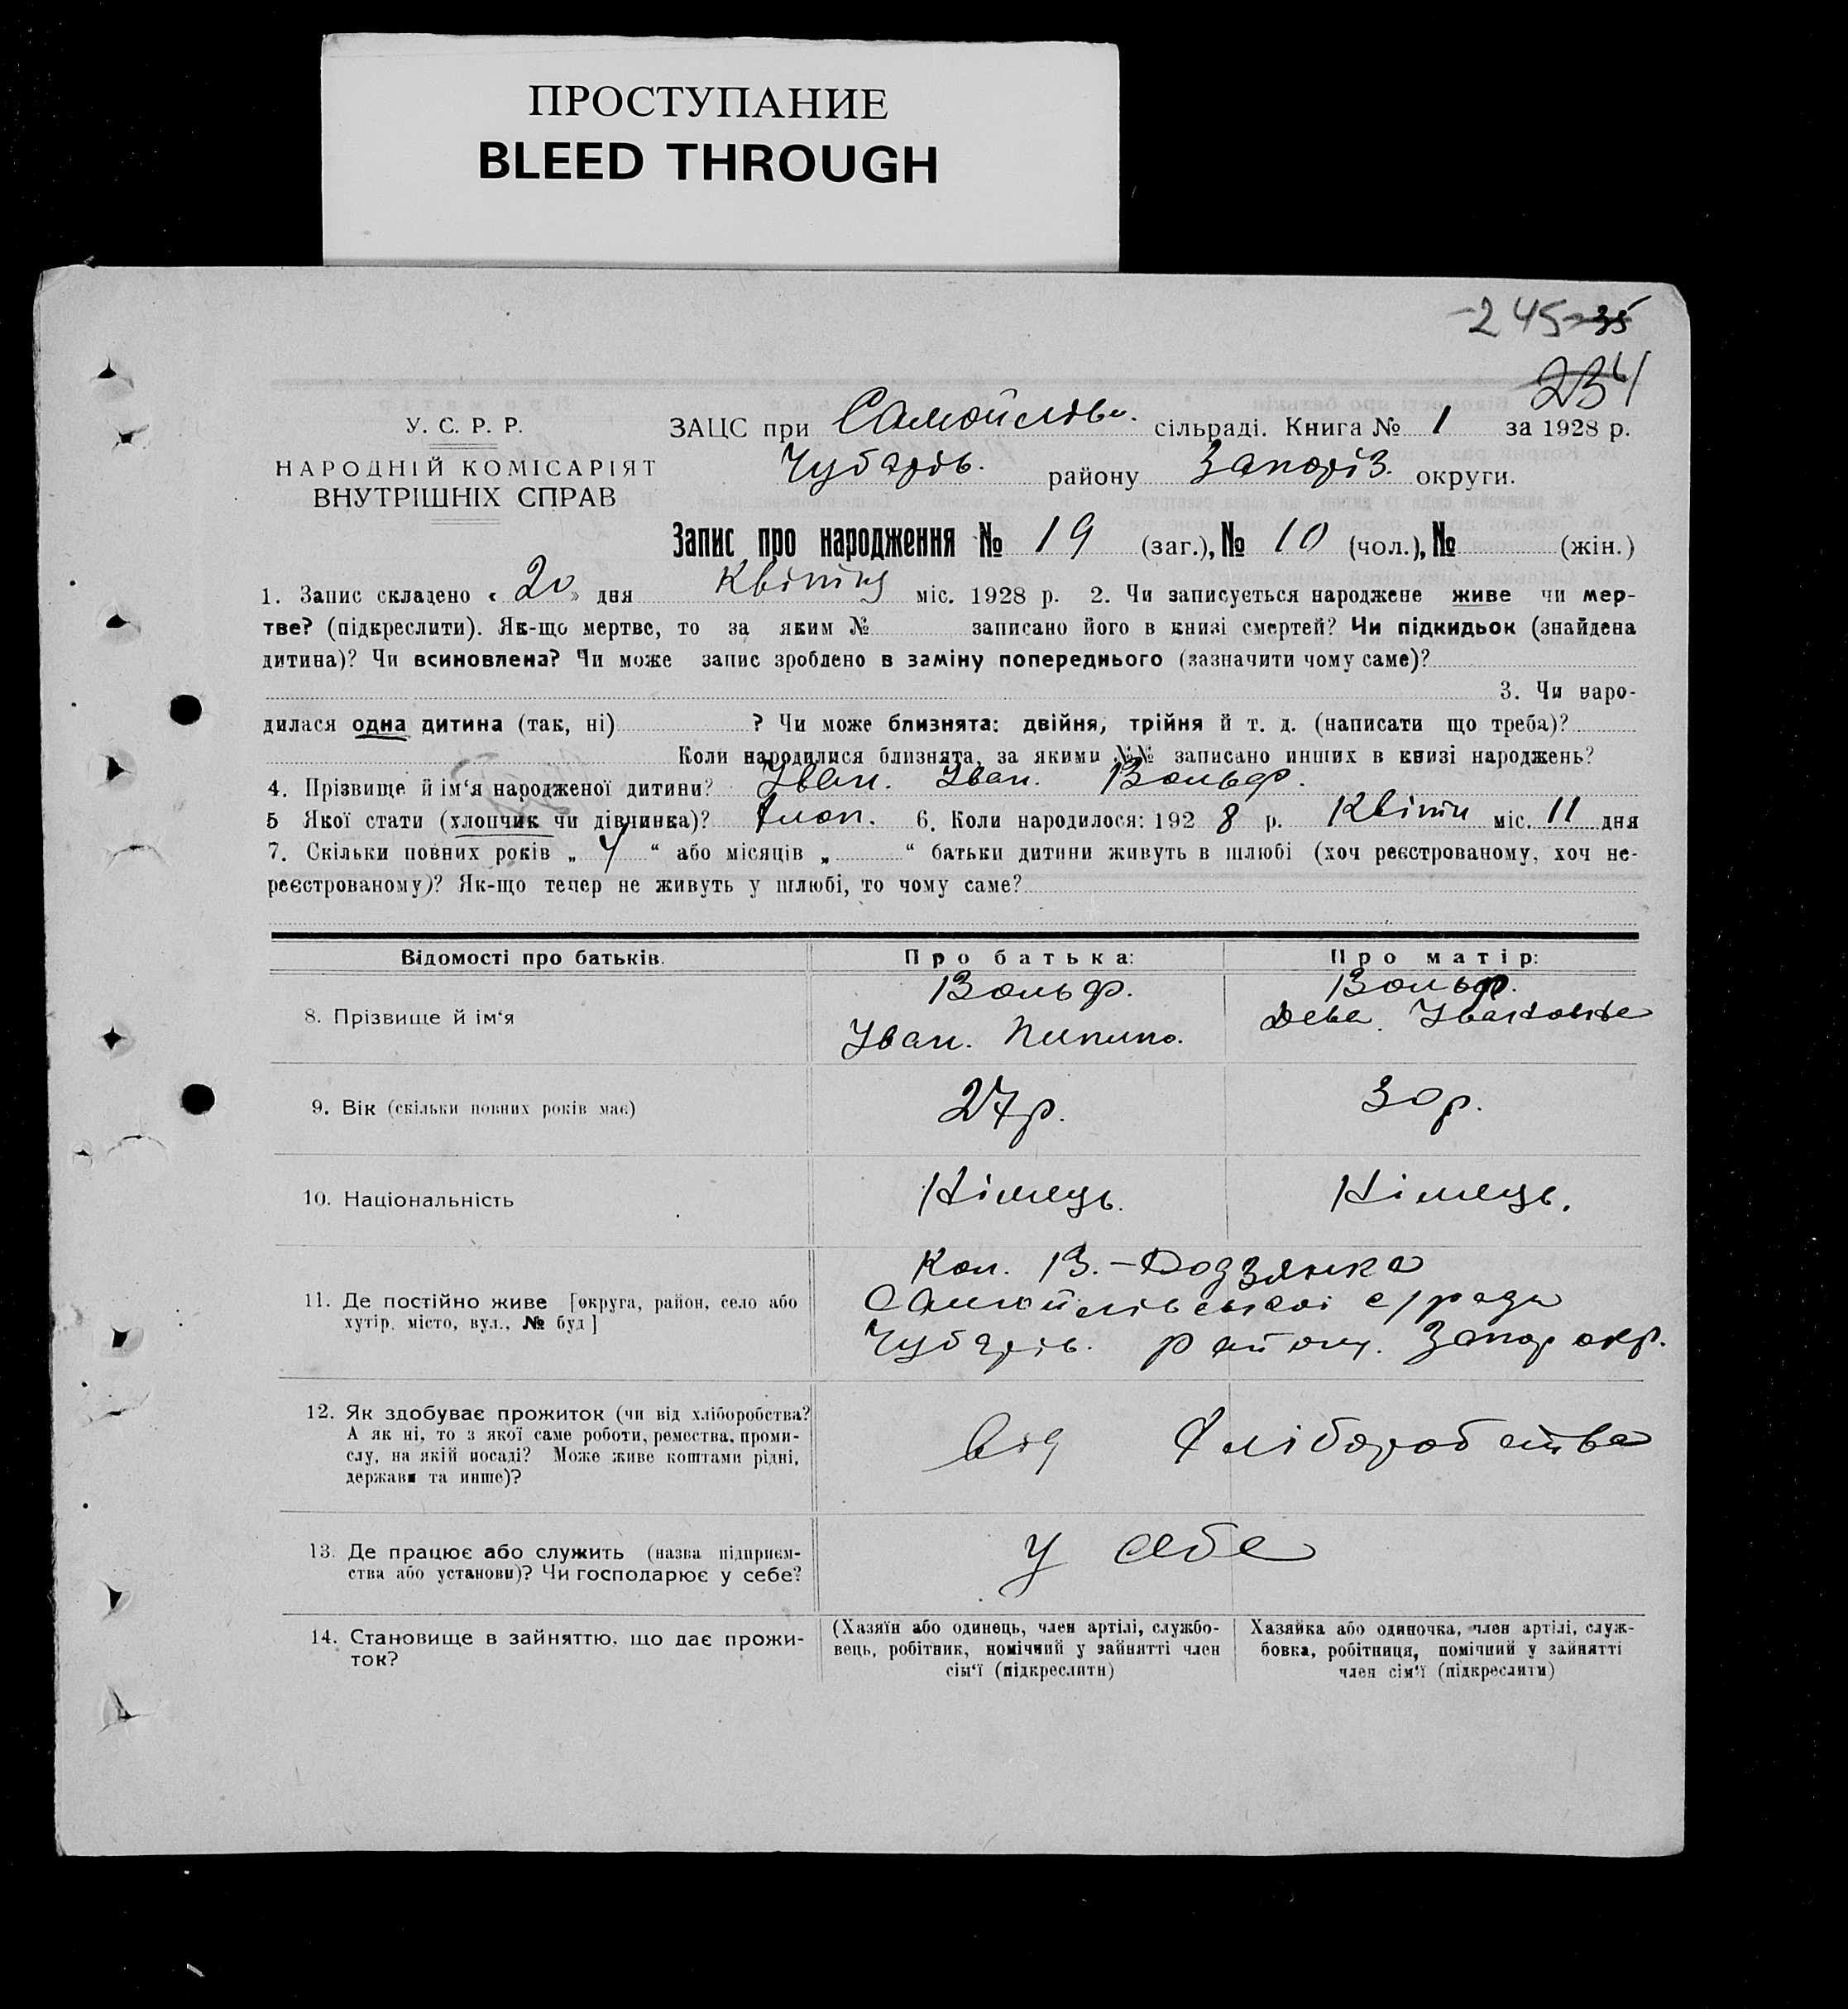 ПРОСТУПАНИЕ
BLEED THROUGH
-245- 35
234
У. С. Р. Р.
НАРОДНІЙ КОМІСАРІЯТ
ВНУТРІШНІХ СПРАВ
ЗАЦС при Самойлів. сільраді. Книга № 1 за 1928 р.
Чубарів. району Запоріз. округи.
Запис про народження № 19 (заг.), № 10 (чол.), № (жін.)
1. Запис складено « 20 » дня Квітня міс. 1928 р. 2. Чи записується народжене живе чи мер-
тве? (підкреслити). Як-що мертве, то за яким № записано його в книзі смертей? Чи підкидьок (знайдена
дитина)? Чи всиновлена? Чи може запис зроблено в заміну попереднього (зазначити чому саме)?
3. Чи наро-
дилася одна дитина (так, ні) ? Чи може близнята: двійня, трійня й т. д. (написати що треба)?
Коли народилися близнята, за якими №№ записано инших в книзі народжень?
4. Прізвище й ім‘я народженої дитини? Іван. Іван. Вольф.
5 Якої стати (хлопчик чи дівчинка)? Хлоп. 6. Коли народилося: 192 8 р. Квітн міс. 11 дня
7. Скільки повних років „ 4 “ або місяців „ “ батьки дитини живуть в шлюбі (хоч реєстрованому, хоч не-
реєстрованому)? Як-що тепер не живуть у шлюбі, то чому саме?
Відомості про батьків. Про батька: Про матір:
8. Прізвище й ім‘я
Вольф. Іван.
Вольф.
9. Вік (скільки повних років має) 27 р. 30 р.
10. Національність Німець. Німець.
11. Де постійно живе [округа, район, село або
хутір, місто, вул., № буд]
Кол. В.-
Самойлівської с/ради
Чубарів. району. Запор окр.
12. Як здобуває прожиток (чи від хліборобства?
А як ні, то з якої саме роботи, ремества, проми-
слу, на якій посаді? Може живе коштами рідні,
держави та инше)?
від Хліборобства
13. Де працює або служить (назва підприєм-
ства або установи)? Чи господарює у себе?
у себе
14. Становище в зайняттю, що дає прожи-
ток?
(Хазяїн або одинець, член артілі, службо-
вець, робітник, помічний у зайнятті член
сім‘ї (підкреслити)
Хазяйка або одиночка, член артілі, служ-
бовка, робітниця, помічний у зайнятті
член сім‘ї (підкреслити)